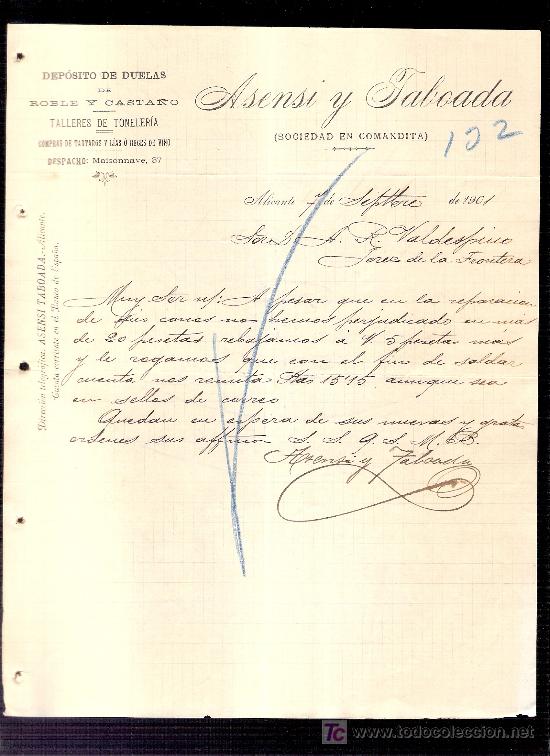 DEPÓSITO DE DUELAS
DE
ROBLE Y CASTAÑO
TALLERES DE TONELERÍA
COMPRAS DE TARTAROS Y LÍAS Ó HECES DE VINO
DESPACHO: Maisonnave, 37
Asensi y Taboada
(SOCIEDAD EN COMANDITA)
102
Alicante 7 de Septbre de 1901
Sor Dn A. R. Valdespino
Jerez de la Frontera
Dirección telegráfica: ASENSI TABOADA.-Alicante.
Cuenta corriente en el Banco de España.
Muy Sor ntr: A pesar que en la reparacion
de sus conos no hemos perjudicado en mas
de 20 pesetas rebajamos a V 5 pesetas mas
y le rogamos que con el fin de saldar
cuenta nos remita Ptas 15'15 aunque sea
en sellos de correo
Quedan en espera de sus nuevas y gratas
ordenes sus affmos S. S. Q. S. M. B.
Asensi y Taboada
TC todocoleccion.net